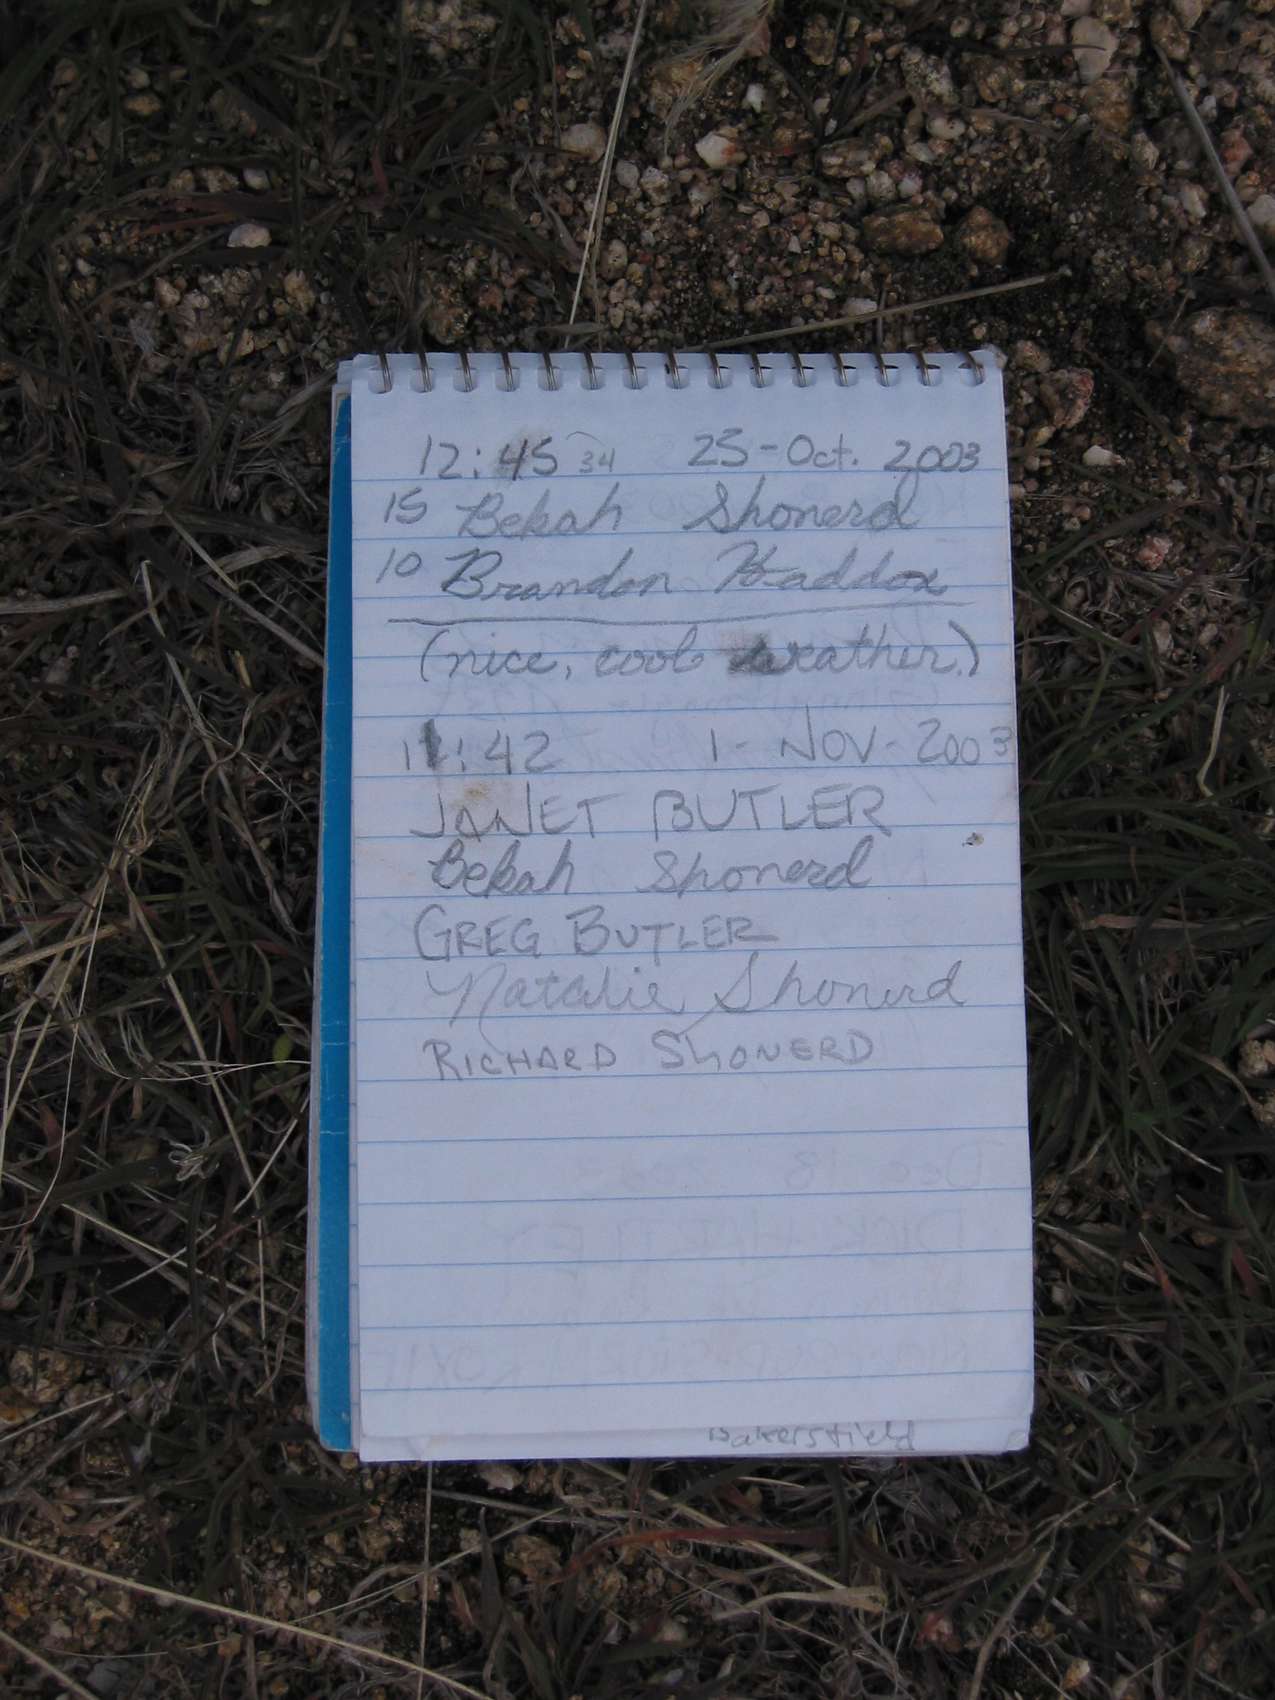 12:45 34 25-Oct. 2003
15 Bekah Shonerd
10 Brandon Haddox
(nice, cool weather.)
11:42 1-NOV-2003
JANET BUTLER
Bekah Shonerd
GREG BUTLER
Natalie Shonerd
RICHARD SHONERD
Dec 18 2003
DICK HARTLEY
Bakersfield